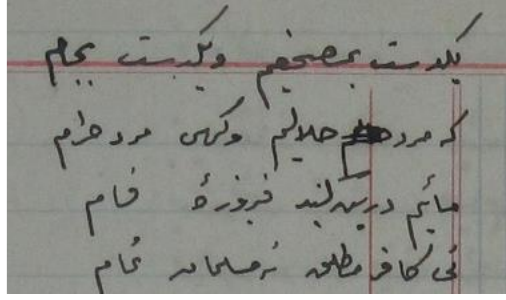 یکدست بمصحفیم ویکدست بجام
که مرد حلالیم وگهی مرد حرام
مائیم درین گنبد فیروزهٔ فام
نی کافر مطلق نه مسلمان تمام